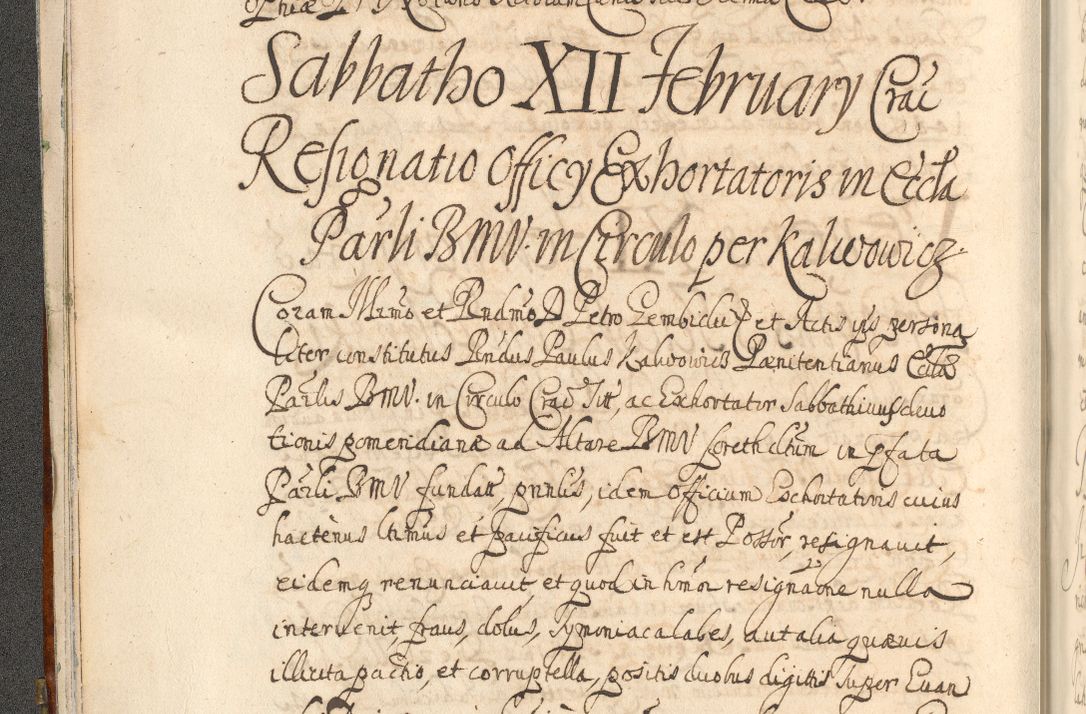 Sabbatho XII February Crac
Resignatio Officy Exhortatoris in Eccla
Parli BMV. in Circulo per Kalwowicz.
Coram Illrmo et Rndmo D Petro Gembicki Ep et Actis ejs persona
liter constitutus Rndus Paulus Kalwowicz Pænitentiarius Eccla
Parlis BMV. in Circulo Crac Sitt, ac Exhortator Sabbathivus devo
tionis pomeridianæ ad Altare BMV in pfata
Parli BMV fundatt, pnnlis, idem Officium Exhortatoris cuius
hactenus ltimus et pacificus fuit et est Possor, resignavit,
eidemq renunciavit, et quod in hmoi resignaone nulla
intervenit, fraus, dolus, Symoniaca labes, aut alia quævis
illicita pactio, et corruptella, positis duobus digittis super Evan